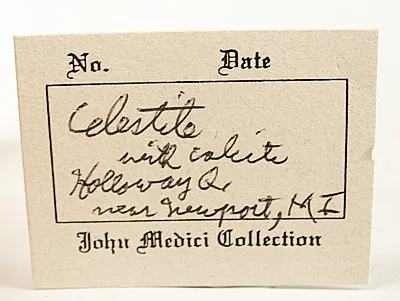 No. Date
Celestite
with calcite
Holloway Q.
near Newport, MI
John Medici Collection